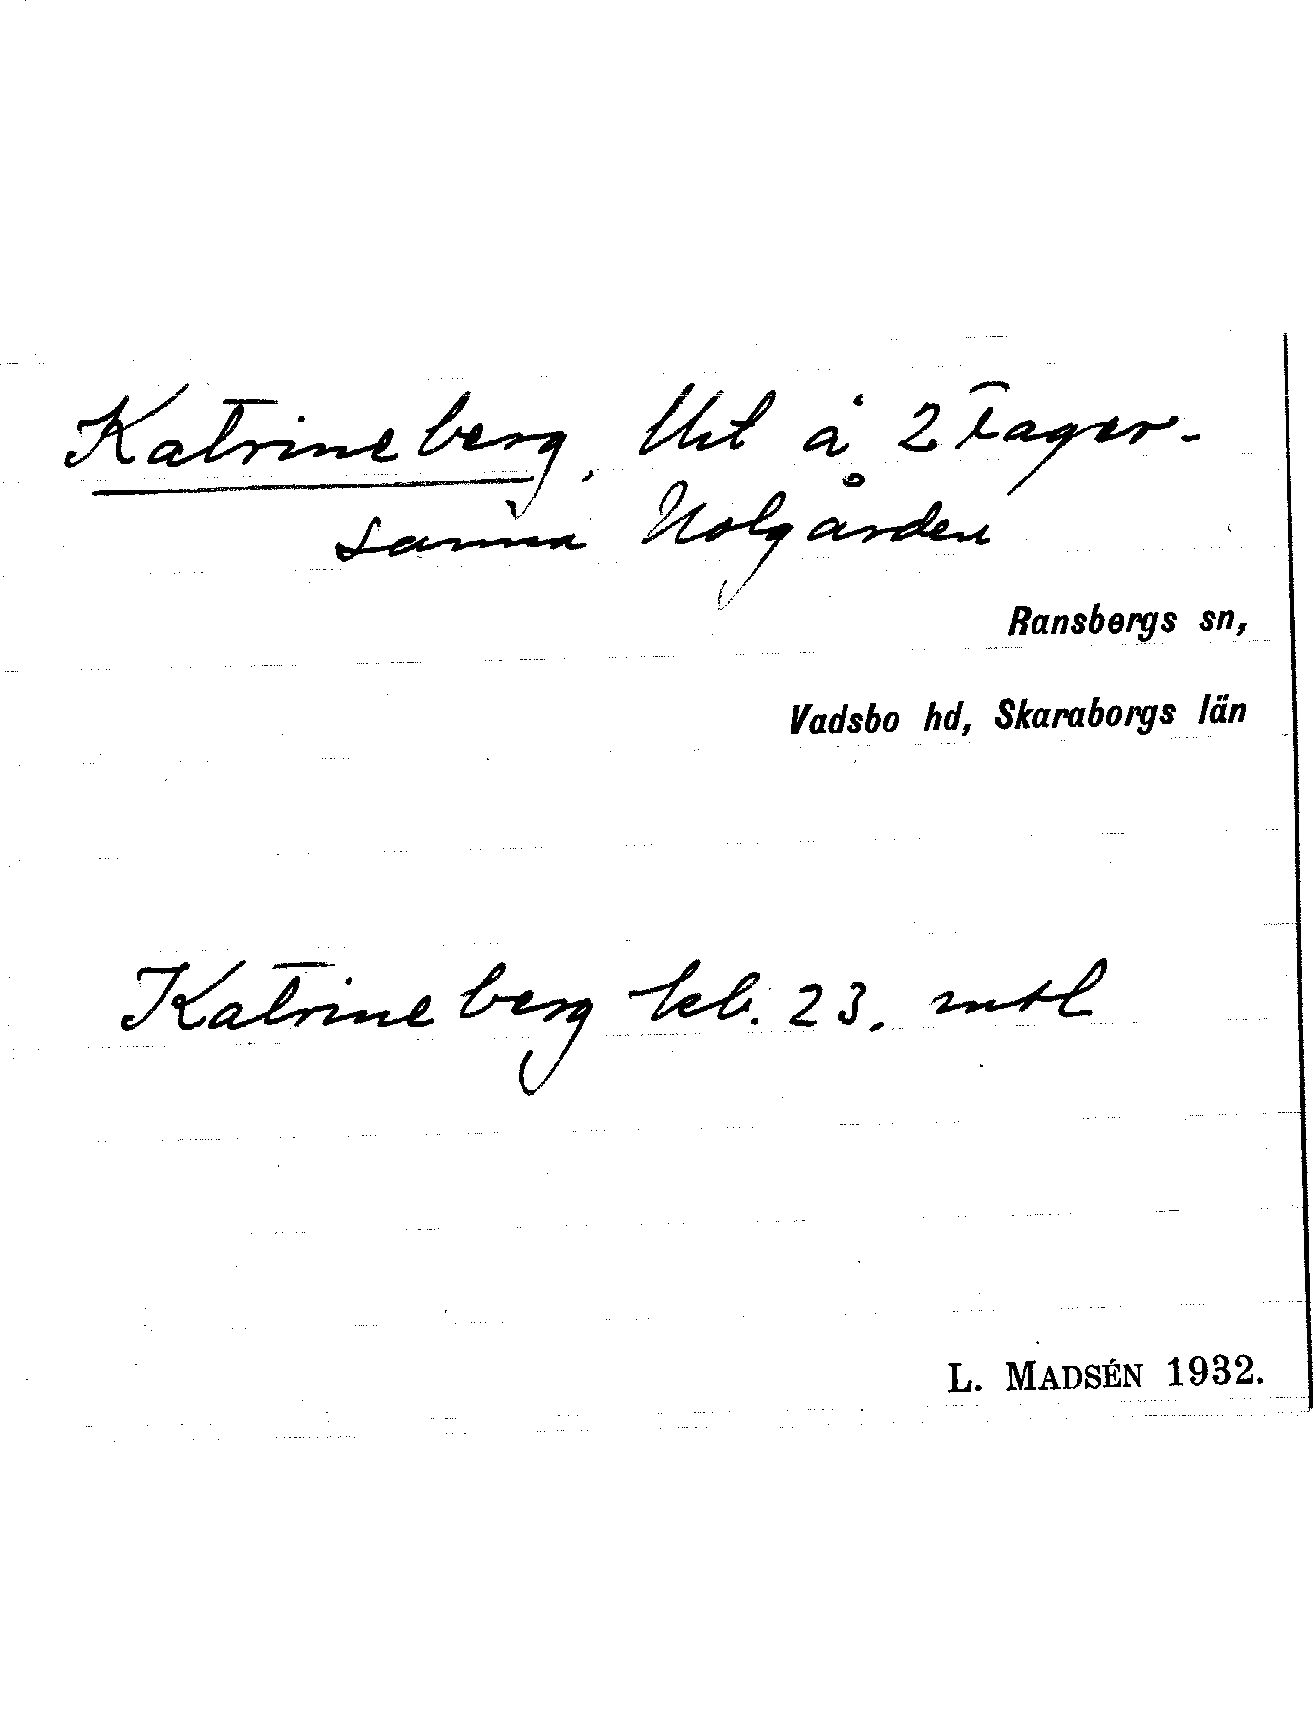 Katrineberg, Uet å 2 Fager-
sanna Nolgården
Ransbergs sn,
Vadsbo hd, Skaraborgs län
Katrineberg kb. 23. mtl
L. MADSÉN 1932.